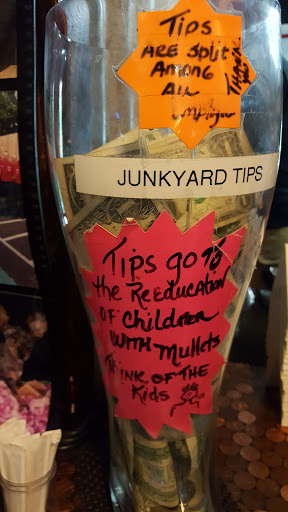 Tips
ARE SPLIT
AMONG
All
employees
THANK
YOU
JUNKYARD TIPS
Tips go to
the Reeducation
OF Children
WITH Mullets
THINK OF THE
Kids